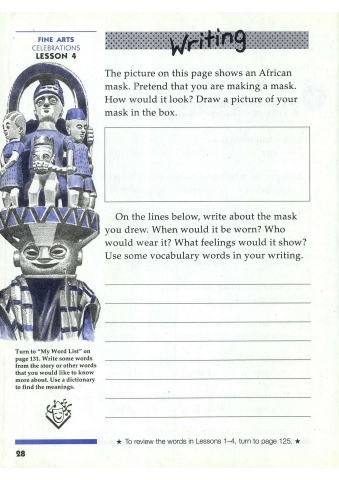 FINE ARTS
CELEBRATIONS
LESSON 4
Writing
The picture on this page shows an African
mask. Pretend that you are making a mask.
How would it look? Draw a picture of your
mask in the box.
On the lines below, write about the mask
you drew. When would it be worn? Who
would wear it? What feelings would it show?
Use some vocabulary words in your writing.
Turn to "My Word List" on
page 131. Write some words
from the story or other words
that you would like to know
more about. Use a dictionary
to find the meanings.
★ To review the words in Lessons 1–4, turn to page 125. ★
28